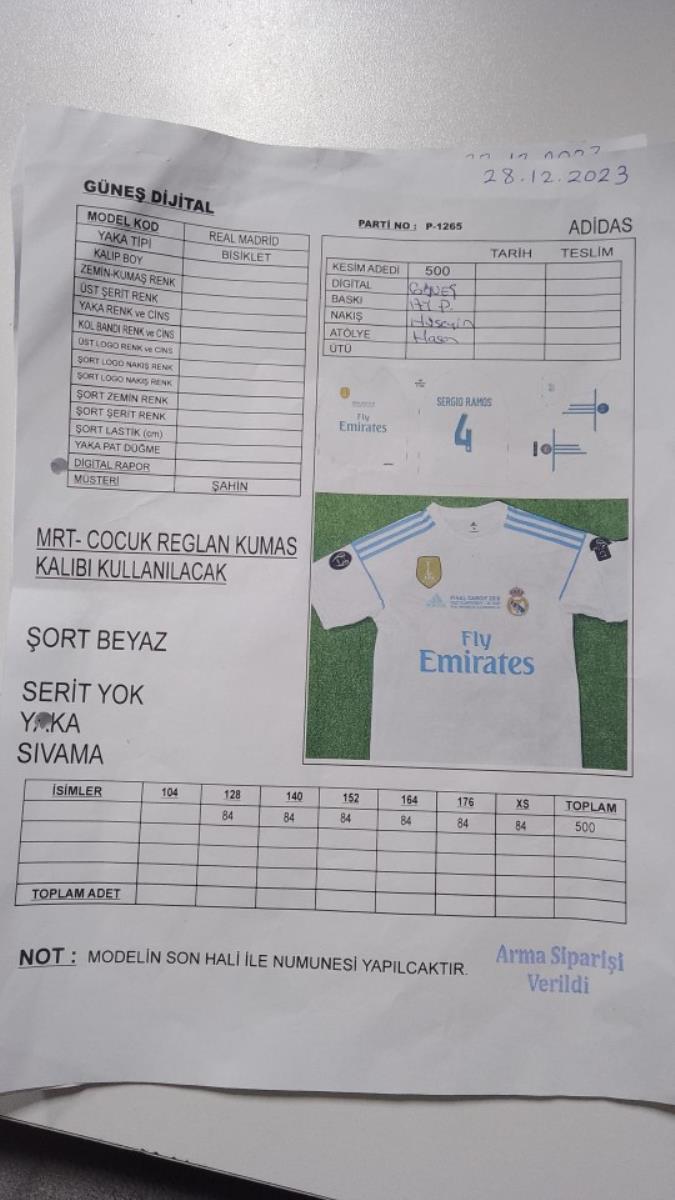 28.12.2023
GÜNEŞ DİJİTAL
PARTİ NO : P-1265
ADİDAS
MODEL KOD REAL MADRİD
YAKA TİPİ BİSİKLET
KALIP BOY
ZEMİN-KUMAŞ RENK
ÜST ŞERİT RENK
YAKA RENK ve CİNS
KOL BANDI RENK ve CİNS
ÜST LOGO RENK ve CİNS
ŞORT LOGO NAKIŞ RENK
ŞORT LOGO NAKIŞ RENK
ŞORT ZEMİN RENK
ŞORT ŞERİT RENK
ŞORT LASTİK (cm)
YAKA PAT DÜĞME
DİGİTAL RAPOR
MÜSTERİ ŞAHİN
TARİH TESLİM
KESİM ADEDİ 500
DİGİTAL GÜNEŞ
BASKI
NAKIŞ Hüseyin
ATÖLYE Hasan
ÜTÜ
Fly
Emirates
SERGIO RAMOS
4
MRT- COCUK REGLAN KUMAS
KALIBI KULLANILACAK
ŞORT BEYAZ
SERİT YOK
YAKA
SIVAMA
Fly
Emirates
İSİMLER 104 128 140 152 164 176 XS TOPLAM
84 84 84 84 84 84 500
TOPLAM ADET
NOT : MODELİN SON HALİ İLE NUMUNESİ YAPILCAKTIR.
Arma Siparişi
Verildi